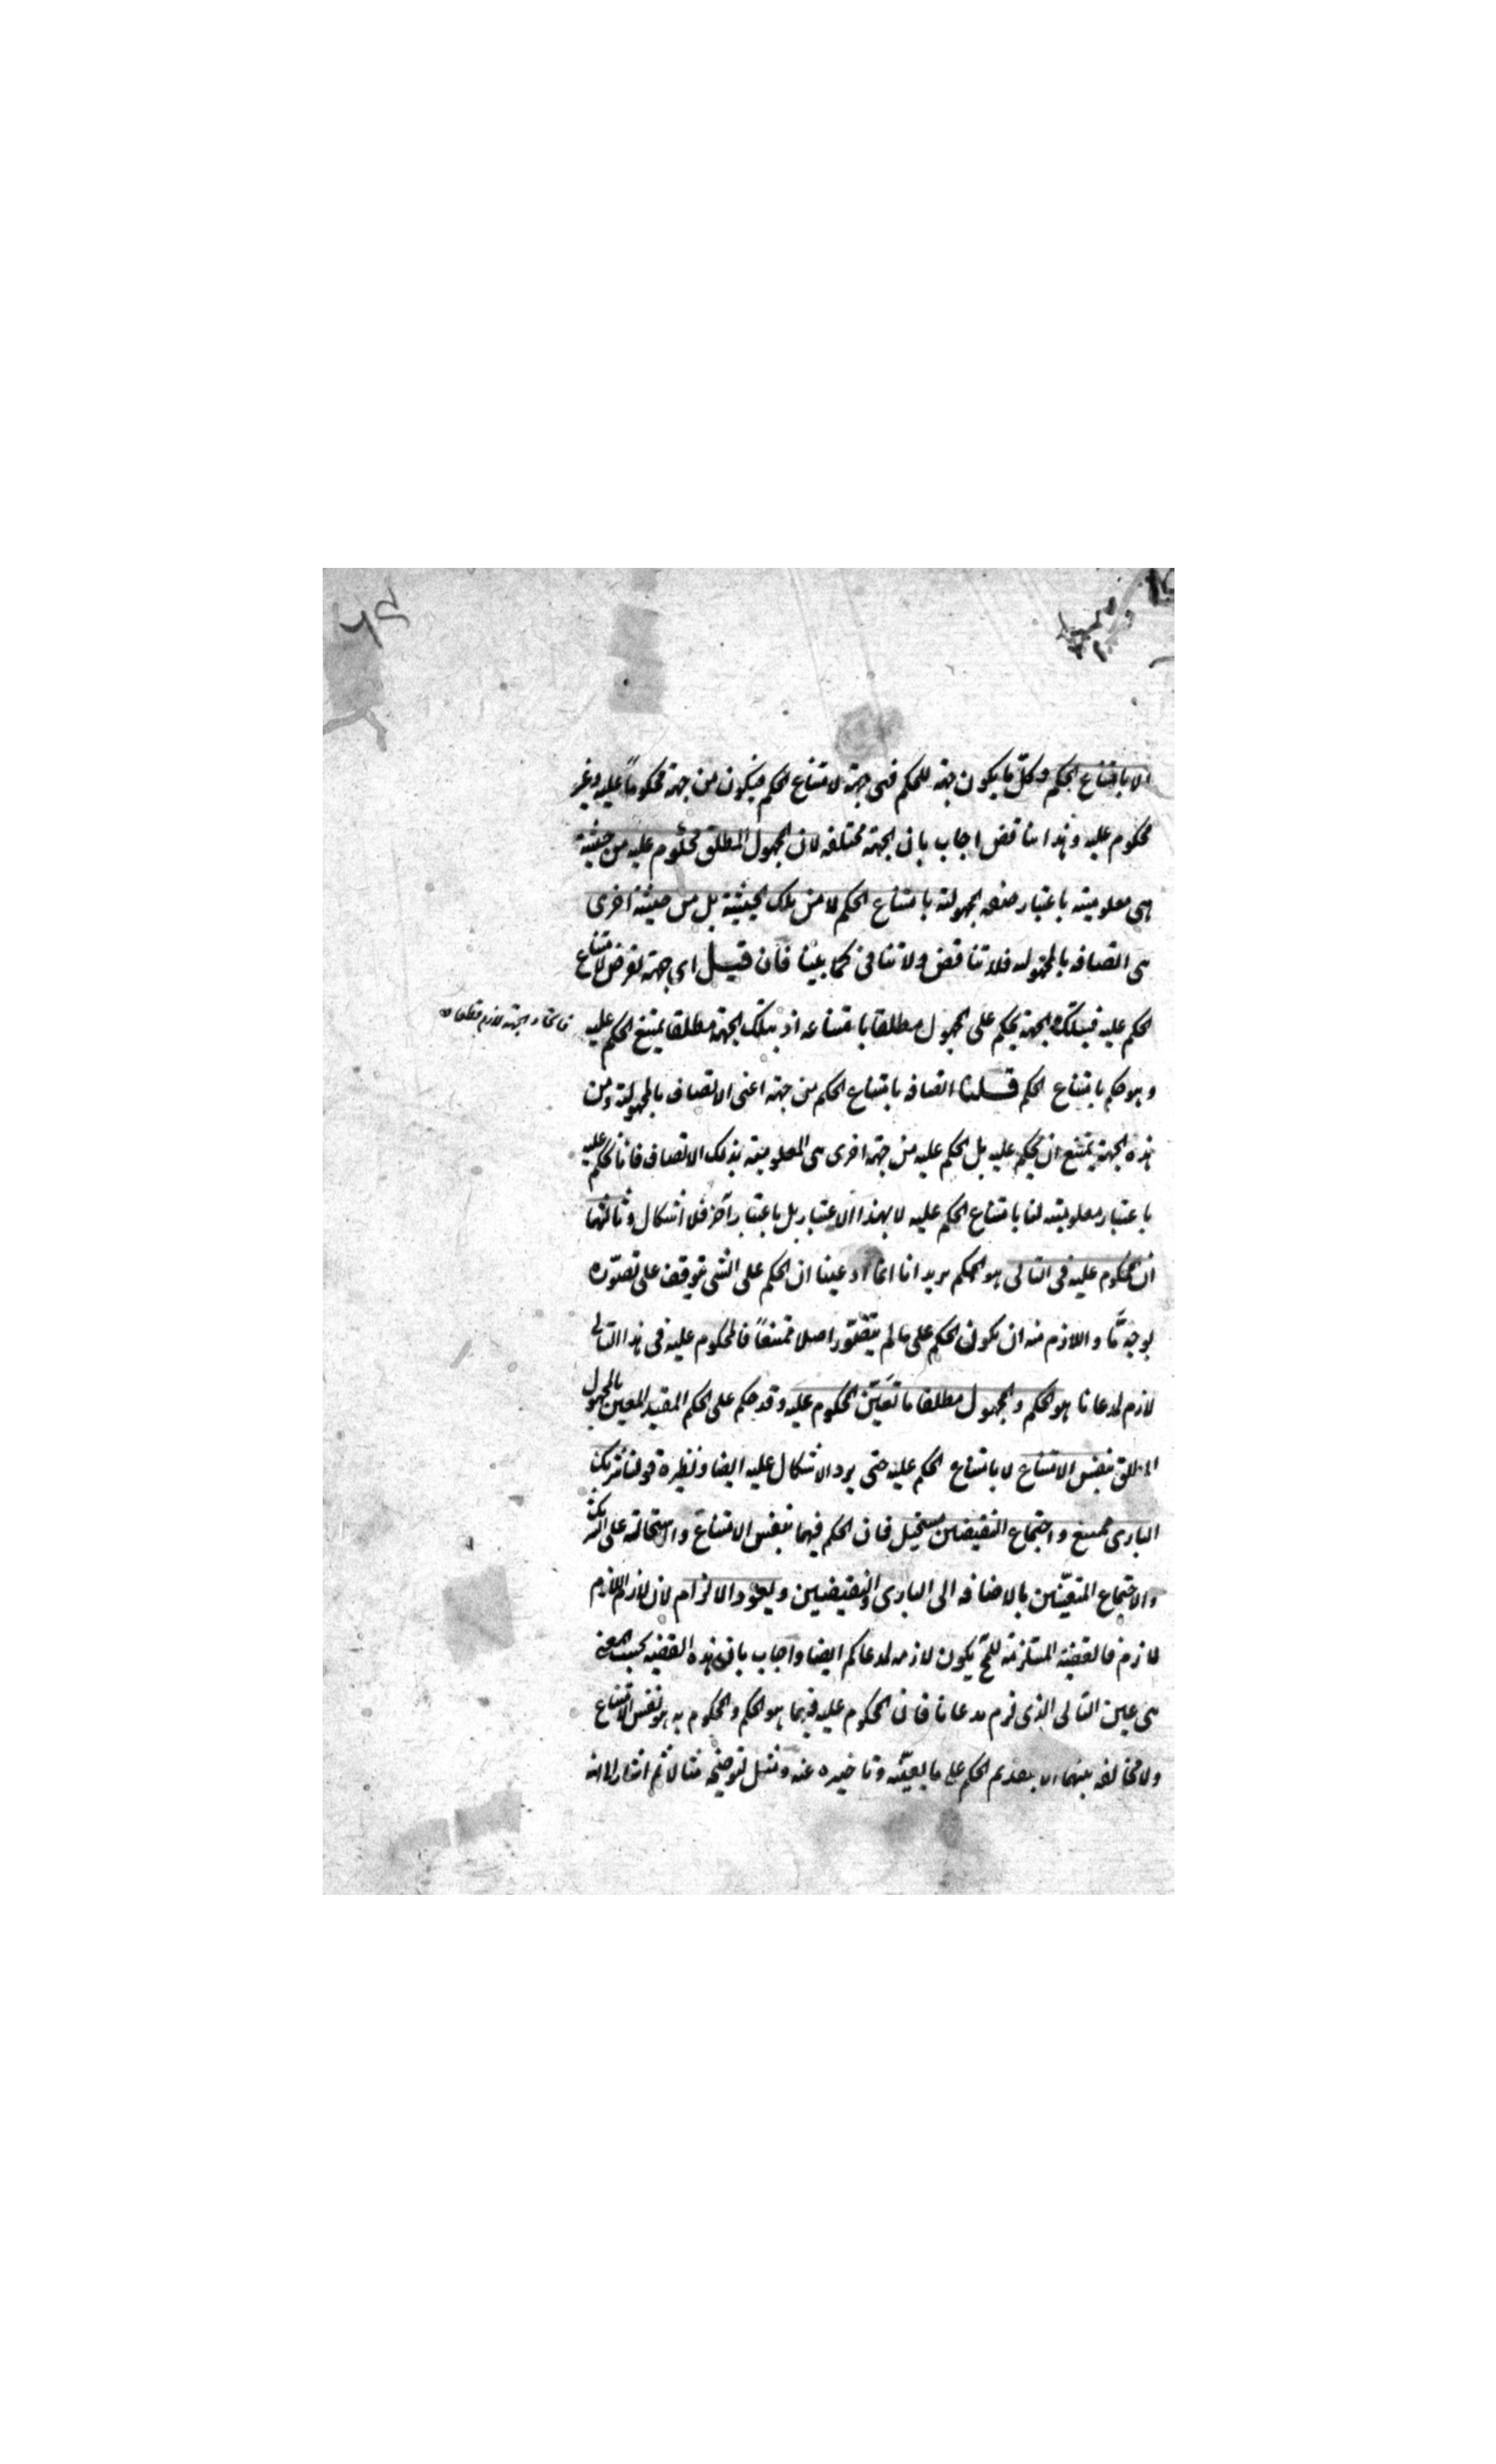 الا بامتناع الحكم وكل ما يكون جهة للحكم فهى جهة لامتناع الحكم فيكون من جهة محكوماً عليه وغير
محكوم عليه وهذا تناقض اجاب بان الجهة مختلفة لان المجهول المطلق محكوم عليه من حيثية
هى معلوميته باعتبار صفة المجهولية بامتناع الحكم لا من تلك الحيثية بل من حيثية اخرى
هى اتصافه بالمجهولية فلا تناقض ولا تنافى كما بينا فان قيل اى جهة تفرض لامتناع
الحكم عليه فبتلك الجهة يحكم على المجهول مطلقا بامتناعه اذ بتلك الجهة مطلقا يمتنع الحكم عليه
فاتحاد الجهة لازم قطعا
وهو حكم بامتناع الحكم قلنا اتصافه بامتناع الحكم من جهة اعنى الاتصاف بالمجهولية ومن
هذه الجهة يمتنع ان يحكم عليه بل الحكم عليه من جهة اخرى هى المعلومية بذلك الاتصاف فانا نحكم عليه
باعتبار معلوميته لنا بامتناع الحكم عليه لا بهذا الاعتبار بل باعتبار آخر فلا اشكال وثالثها
ان المحكوم عليه فى التالى هو الحكم يريد انا انما ادعينا ان الحكم على الشى يتوقف على تصوره
بوجه ما واللازم منه ان يكون الحكم على ما لم يتصور اصلا ممتنعاً فالمحكوم عليه فى هذا التالى
لازم لمدعانا هو الحكم والمجهول مطلقا ما تعين المحكوم عليه وقد حكم على الحكم المقيد المعين بالمجهول
المطلق بنفس الامتناع لا بامتناع الحكم عليه حتى يرد الاشكال عليه ايضا ونظيره قولنا شريك
البارى ممتنع واجتماع النقيضين مستحيل فان الحكم فيهما بنفس الامتناع والاستحالة على الشريك
والاجتماع المتعينين بالاضافة الى البارى والنقيضين ويعود الالزام لان لازم اللازم
لازم فالقضية المستلزمة للمح يكون لازمه لمدعاكم ايضا واجاب بان هذه القضية بحسب المعنى
هى عين التالى الذى لزم مدعانا فان المحكوم عليه فيهما هو الحكم والمحكوم به هو نفس الامتناع
ولا مخالفة بينهما الا بتقديم الحكم على ما يعينه وتاخيره عنه ومثل لتوضيحه مثالا ثم اشار الى انه